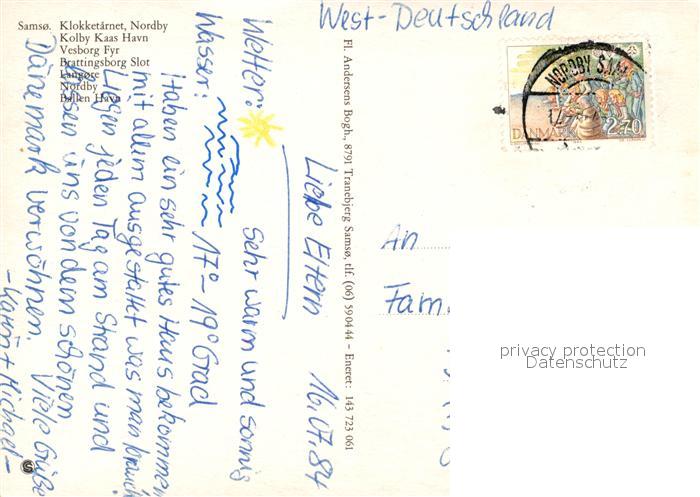 Samsø. Klokketårnet, Nordby
Kolby Kaas Havn
Vesborg Fyr
Brattingsborg Slot
Langøre
Nordby
Ballen Havn
West-Deutschland
NORDBY SAMSØ
DANMARK
2.70
Fl. Andersens Bogh., 8791 Tranebjerg Samsø, tlf. (06) 590444 - Eneret: 143 723 061
Liebe Eltern 16.07.84
Wetter: sehr warm und sonnig
Wasser: 17° - 19° Grad
Haben ein sehr gutes Haus bekommen
mit allem ausgestattet was man brauch
Liegen jeden Tag am Strand und
lassen uns von dem schönen
Dänemark verwöhnen. Viele Grüße
- Karin + Michael -
An
Fam.
privacy protection
Datenschutz